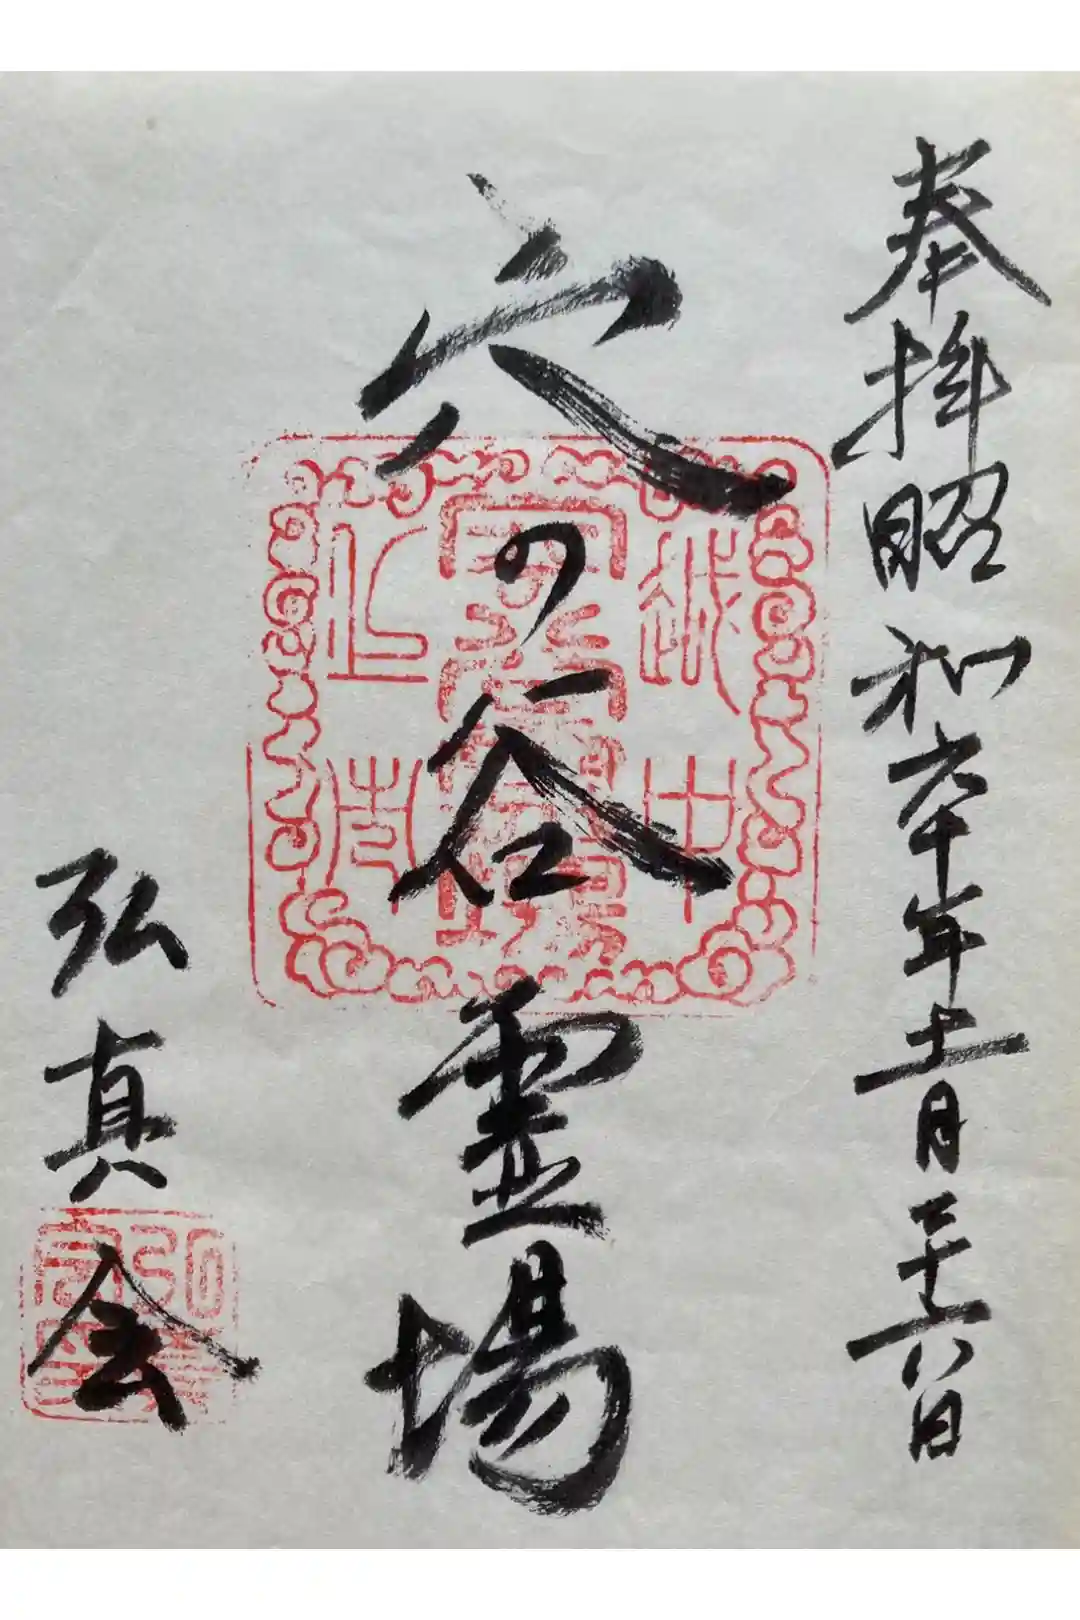 奉拝昭和六十年十一月二十六日
穴の谷霊場
弘真会
越中
上市